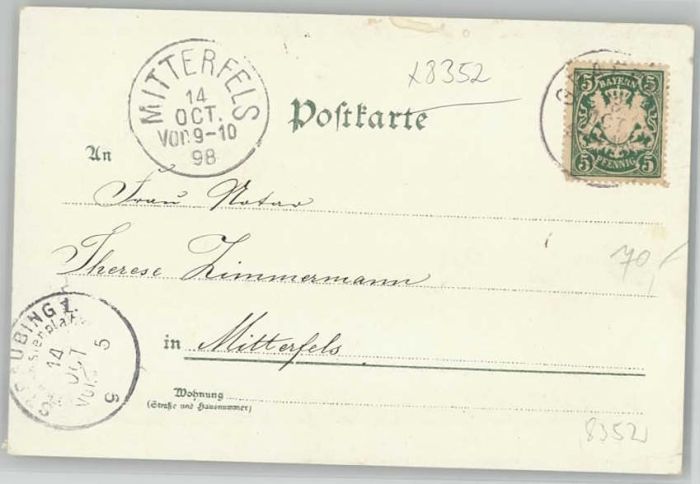 MITTERFELS
14
OCT.
VOR 9-10
98
x8352
Postkarte
5 BAYERN 5
5 PFENNIG 5
An
Frau Notar
Therese Zimmermann
70,-
STRAUBING 1.
14
OCT
VOR
5
in Mitterfels
Wohnung
(Straße und Hausnummer)
8352